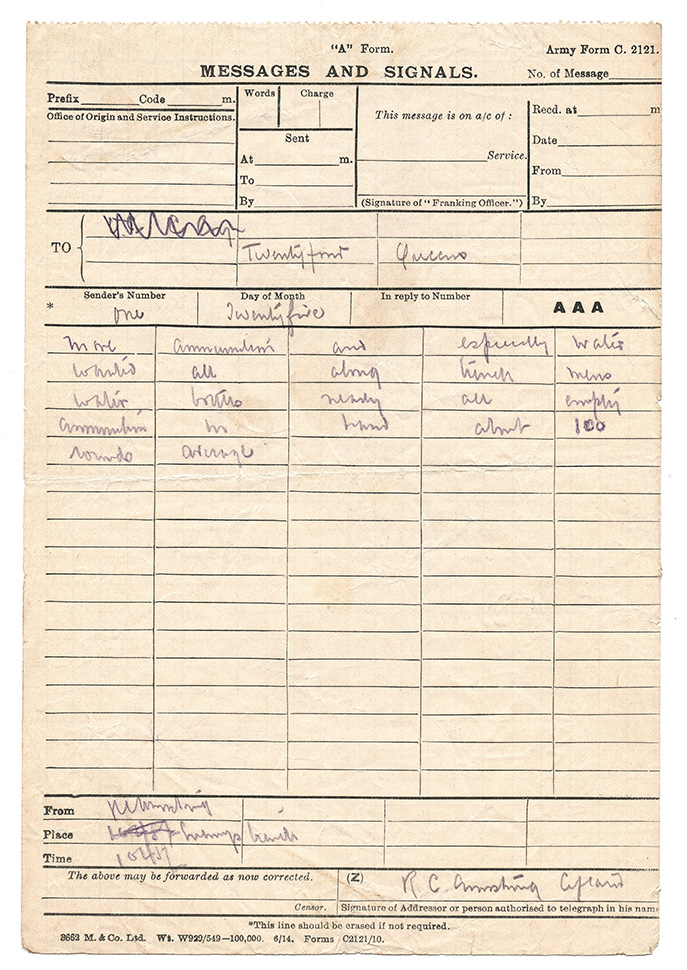 "A" Form. Army Form C. 2121.
MESSAGES AND SIGNALS. No. of Message
Prefix Code m. Words Charge This message is on a/c of : Recd. at m
Office of Origin and Service Instructions.
Sent Date
At m. Service. From
To
By (Signature of "Franking Officer.") By
TO
Twentyfour Queens
Sender's Number Day of Month In reply to Number AAA
* one Twentyfive
More ammunition and especially water
wanted all along trench mens
water bottles nearly all empty
ammunition in hand about 100
rounds average
From
Place trench
Time
The above may be forwarded as now corrected. (Z) R C Armstrong
Censor. Signature of Addressor or person authorised to telegraph in his name
*This line should be erased if not required.
3663 M. & Co. Ltd. Wt. W929/549—100,000. 6/14. Forms C2121/10.